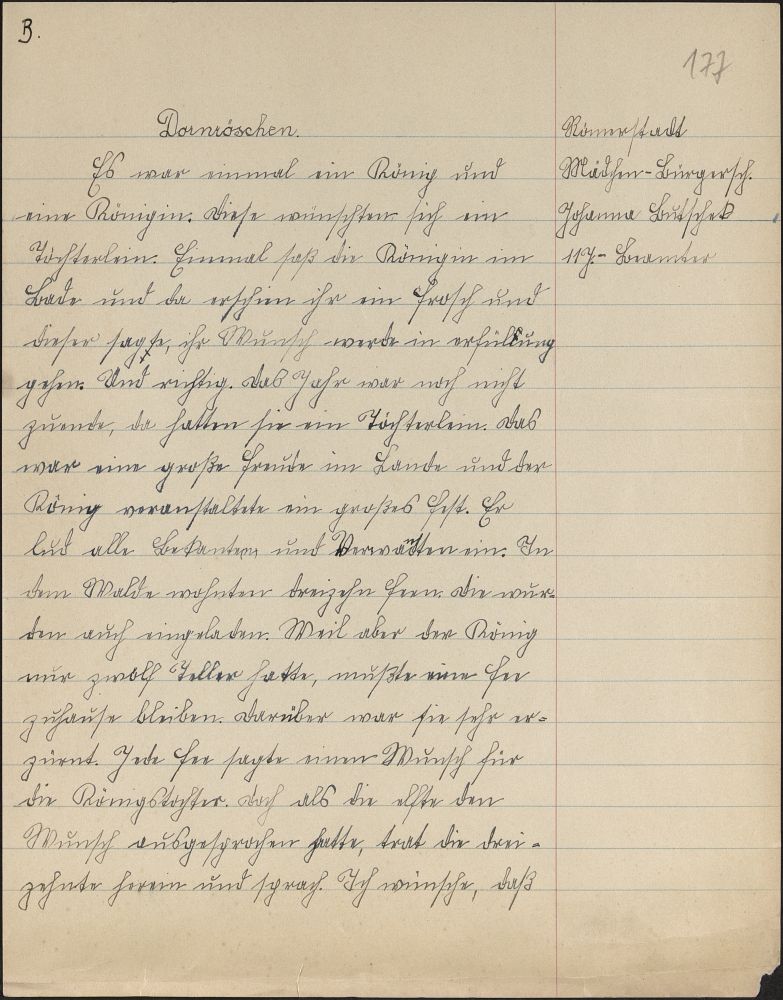 B.
177
Dornröschen.
Es war einmal ein König und
eine Königin. Diese wünschten sich ein
Töchterlein. Einmal saß die Königin im
Bade und da erschien ihr ein Frosch und
dieser sagte, ihr Wunsch werde in erfüllung
gehen. Und richtig. Das Jahr war noch nicht
zuende, da hatten sie ein Töchterlein. Das
war eine große Freude im Lande und der
König veranstaltete ein großes Fest. Er
lud alle Bekanten und Verwandten ein. In
dem Walde wohnten dreizehn Feen. Die wur-
den auch eingeladen. Weil aber der König
nur zwölf Teller hatte, mußte eine Fee
zuhause bleiben. Darüber war sie sehr er-
zürnt. Jede Fee sagte einen Wunsch für
die Königstochter. Doch als die elfte den
Wunsch ausgesprochen hatte, trat die drei-
zehnte herein und sprach. Ich wünsche, daß
Römerstadt
Mädchen-Bürgersch.
Johanna Butschek
11J.- Beamter